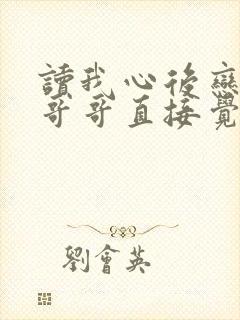 讀我心後戀
哥哥直接覺
劉會英